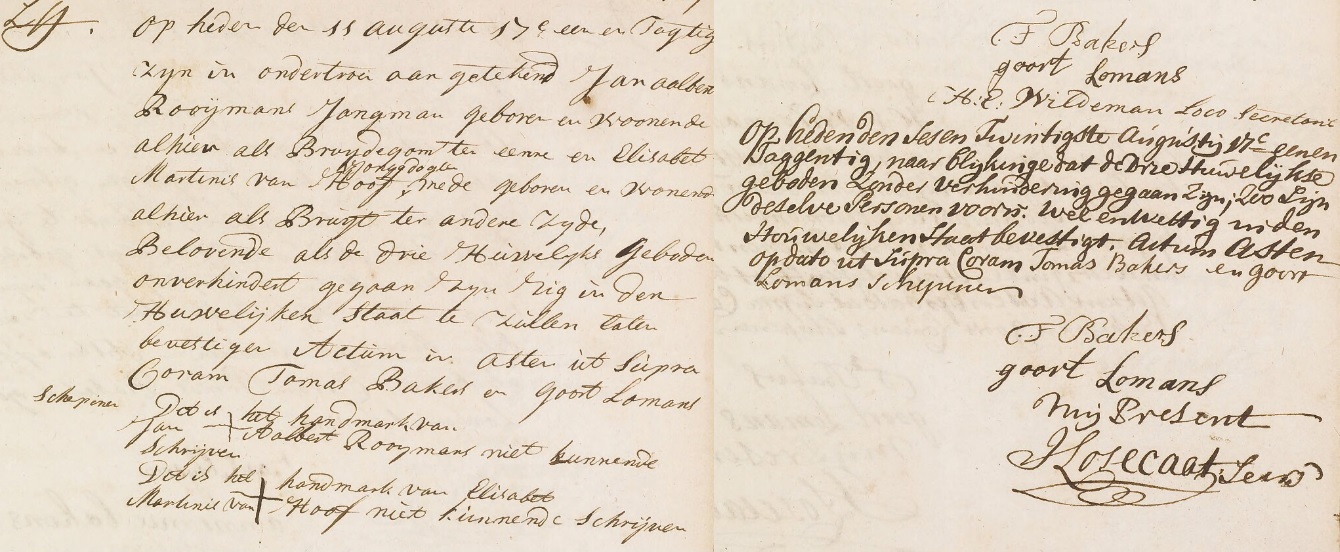 op heden den 11 augustu 17c een en Tagtig
zyn in ondertrou aan getekend Jan aalbert
Rooijmans Jongman geboren en woonende
alhier als Bruydegom ter eenre en Elisabet
Jongdogter
Martinis van Hoof, mede geboren en wonend
alhier als Bruyt ter andere zyde,
Belovende als de drie Huwelyks geboden
onverhindert gegaan zyn zig in den
Huwelijken Staat te zullen laten
bevestigen Actum in asten ut Supra
Coram Tomas Bakers en goort Lomans
Schepenen
Dit is het handmark van
Jan Aalbert Rooymans niet kunnende
Schrijven
Dit is het handmark van Elisabet
Martinis van Hoof niet kunnende Schrijven
F Bakers
goort Lomans
H. E. Wildeman Loco Secretaris
Op heden den Sesen Twintigste Augusty 17c eenen
Taggentig, naar blykinge dat de Drie Huwelijkse
geboden Zonder verhindering gegaan Zijn, Zoo Zijn
deselve Persoonen voors. wel en wettig in den
Houwelijken Staat bevestigt. Actum Asten
op dato ut Supra Coram Tomas Bakers en goort
Lomans Schepenen
F Bakers
goort Lomans
Mij Present